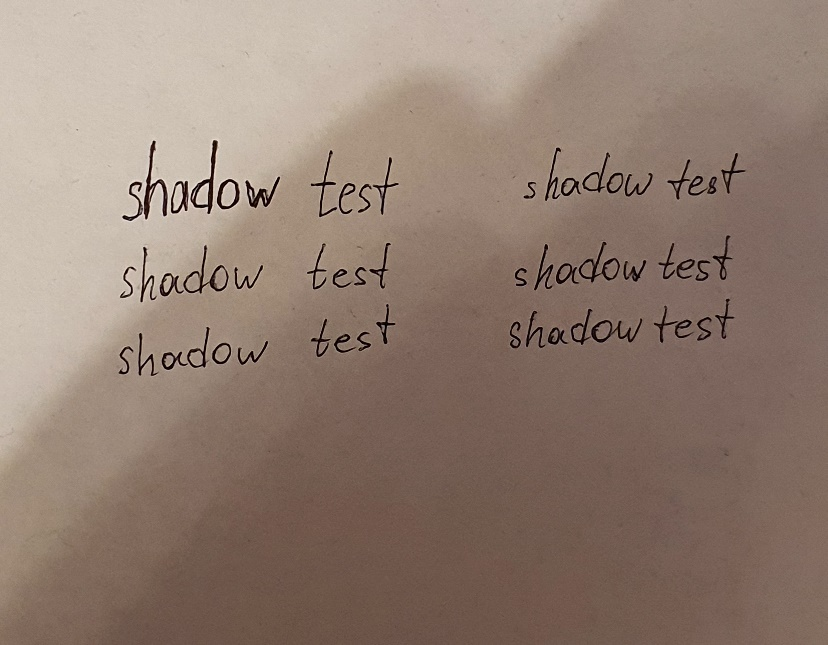 shadow test shadow test
shadow test shadow test
shadow test shadow test